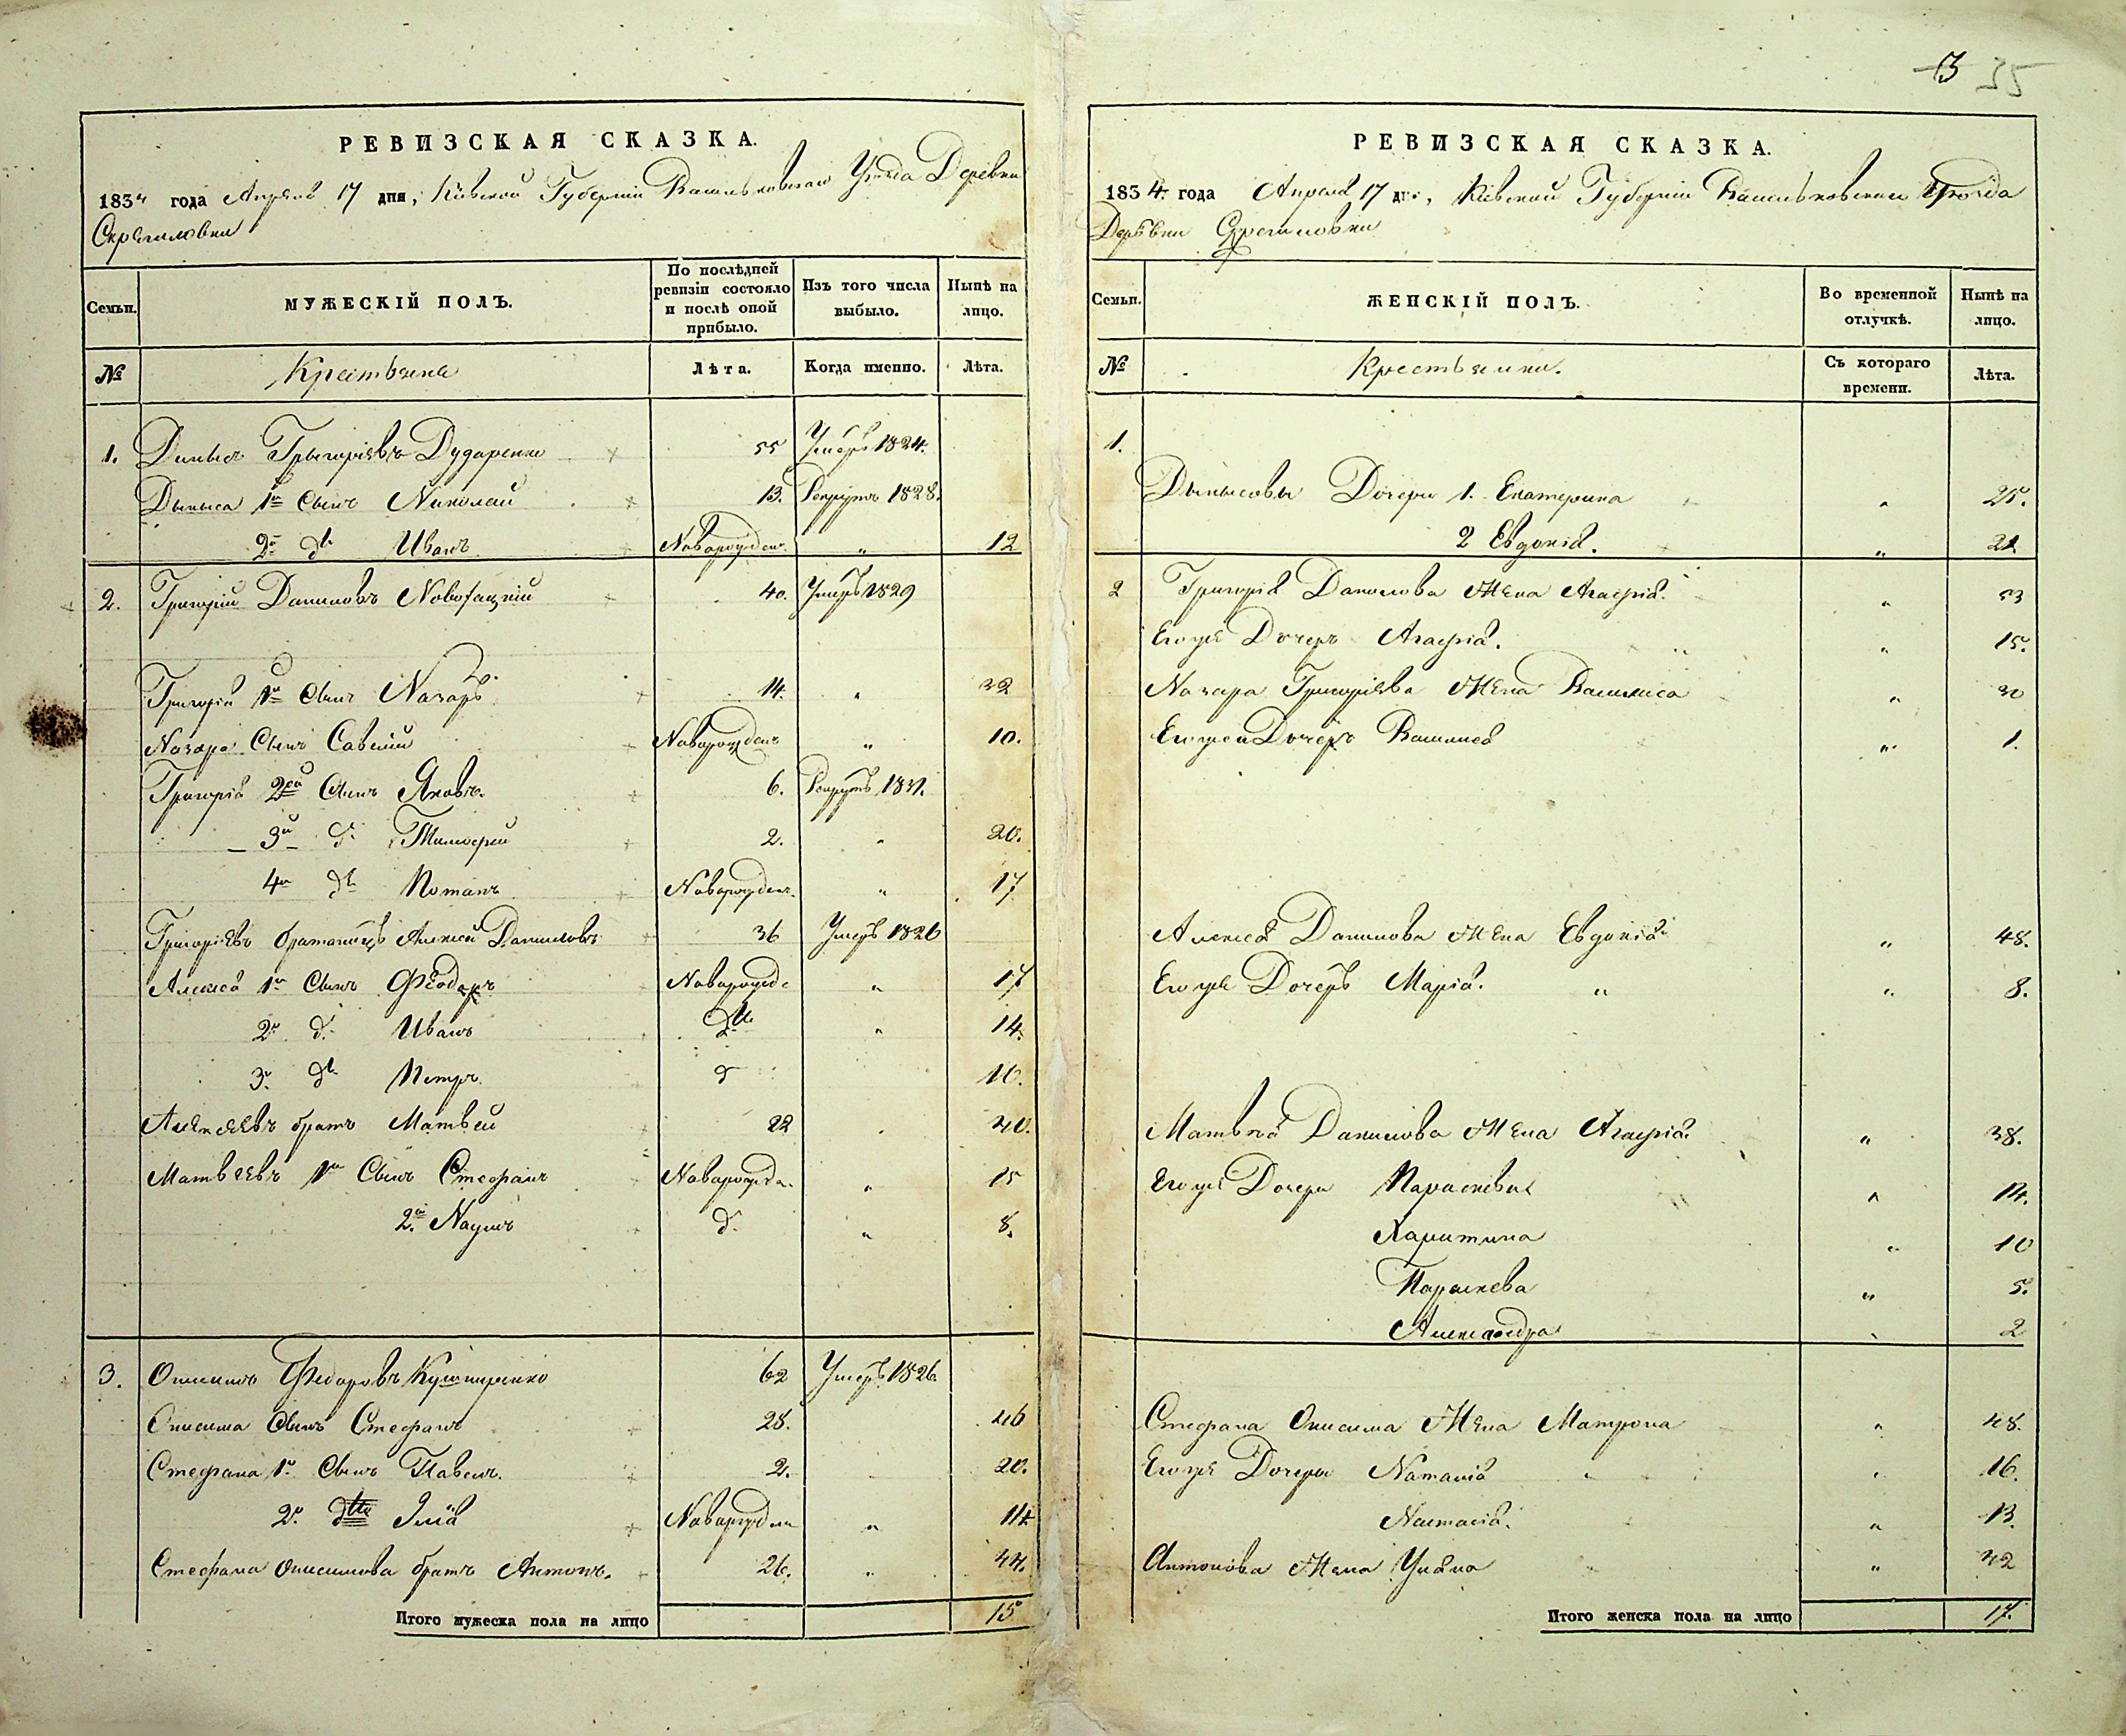 3 35
РЕВИЗСКАЯ СКАЗКА.
1834 года Апреля 17 дня, Кіевской Губерніи Васильковскаго Уезда Деревни
Скрегиловки
Семьи.
МУЖЕСКІЙ ПОЛЪ.
По послѣдней ревизіи состояло и послѣ оной прибыло.
Изъ того числа выбыло.
Нынѣ на лицо.
№ Крестьяне Лѣта. Когда именно. Лѣта.
1. Григоріевъ Дударенко 55 Умеръ 1824.
Дыныса 1й Сынъ Николай 13. Рекрутъ 1828.
2й дто Иванъ Новорожден. " 12
2. Григорій Даниловъ Новофацкій 40. Умеръ 1829
Григорія 1й Сынъ Назаръ 14. " 32
Назара Сынъ Савелій Новорожденъ " 10.
Григорія 2й Сынъ Яковъ. 6. Рекрутъ 1831.
3й д. Тимофей 2. " 20.
4й дто Романъ Новорожден. " 17
Григоріевъ братъ Алексей Даниловъ 36 Умеръ 1826
Алексея 1й Сынъ Феодоръ Новорожде " 17
2й д. Иванъ дто " 14.
3й дто Петръ. д 10.
Алексеевъ братъ Матвей 22 " 40.
Матвеевъ 1й Сынъ Стефанъ Новорожде. " 15
2й Наумъ д. " 8.
3. Онисимъ Федоровъ Кушниренко 62 Умеръ 1826.
Онисима Сынъ Стефанъ 28. 46
Стефана 1й Сынъ Павелъ. 2. 20.
2й дто Илія Новорожден " 14
Стефана Онисимова братъ Антонъ. 26. " 44.
Итого мужеска пола на лицо 15
РЕВИЗСКАЯ СКАЗКА.
1834. года Апреля 17 дня, Кіевской Губерніи Васильковскаго Уезда
Деревни Скрегиловки
Семьи.
ЖЕНСКІЙ ПОЛЪ.
Во временной отлучкѣ.
Нынѣ на лицо.
№ Крестьянки. Съ котораго времени. Лѣта.
1.
Дынысовы Дочери 1. Екатерина " 25.
2 Евдокія. " 21
2 Григорія Данилова Жена Агафія. " 53
Егоже Дочерь Агафія. " 15.
Назара Григоріева Жена Василиса " 30
Егоже Дочерь " 1.
Алексея Данилова Жена Евдокія " 48.
Егоже Дочерь Марія. " " 8.
Матвея Данилова Жена Агафія. " 38.
Егоже Дочери Параскевія " 14.
Харитина " 10
Параскева " 5.
Александра " 2
Стефана Онисима Жена Матрона " 48.
Егоже Дочери Наталія " 16.
Настасія. " 13.
Антонова Жена Уляна " 42
Итого женска пола на лицо 17.